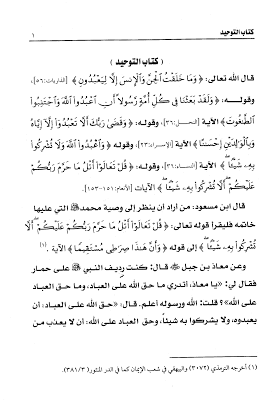 كتاب التوحيد ١
﴿ كتاب التوحيد ﴾
قال الله تعالى: ﴿ وَمَا خَلَقْتُ الْجِنَّ وَالْإِنسَ إِلَّا لِيَعْبُدُونِ ﴾ [الذاريات:٥٦]،
وقوله: ﴿ وَلَقَدْ بَعَثْنَا فِي كُلِّ أُمَّةٍ رَّسُولًا أَنِ اعْبُدُوا اللَّهَ وَاجْتَنِبُوا
الطَّاغُوتَ ﴾ الآية [النحل:٣٦]، وقوله: ﴿ وَقَضَى رَبُّكَ أَلَّا تَعْبُدُوا إِلَّا إِيَّاهُ
وَبِالْوَالِدَيْنِ إِحْسَانًا ﴾ الآية [الإسراء:٢٣]، وقوله: ﴿ وَاعْبُدُوا اللَّهَ وَلَا تُشْرِكُوا
بِهِ شَيْئًا ﴾ الآية [النساء:٣٦]، وقوله: ﴿ قُلْ تَعَالَوْا أَتْلُ مَا حَرَّمَ رَبُّكُمْ
عَلَيْكُمْ أَلَّا تُشْرِكُوا بِهِ شَيْئًا ﴾ الآيات [الأنعام:١٥١-١٥٣].
قال ابن مسعود: من أراد أن ينظر إلى وصية محمد ﷺ التي عليها
خاتمه فليقرأ قوله تعالى: ﴿ قُلْ تَعَالَوْا أَتْلُ مَا حَرَّمَ رَبُّكُمْ عَلَيْكُمْ أَلَّا
تُشْرِكُوا بِهِ شَيْئًا ﴾ إلى قوله ﴿ وَأَنَّ هَذَا صِرَاطِي مُسْتَقِيمًا ﴾ الآية. (١)
وعن معاذ بن جبل ﷺ قال: كنت رديف النبي ﷺ على حمار
فقال لي: «يا معاذ، أتدري ما حق الله على العباد، وما حق العباد
على الله»؟ قلت: الله ورسوله أعلم. قال: «حق الله على العباد: أن
يعبدوه، ولا يشركوا به شيئاً، وحق العباد على الله: أن لا يعذب من
(١) أخرجه الترمذي (٣٠٧٢) والبيهقي في شعب الإيمان كما في الدر المنثور (٣/ ٣٨١)